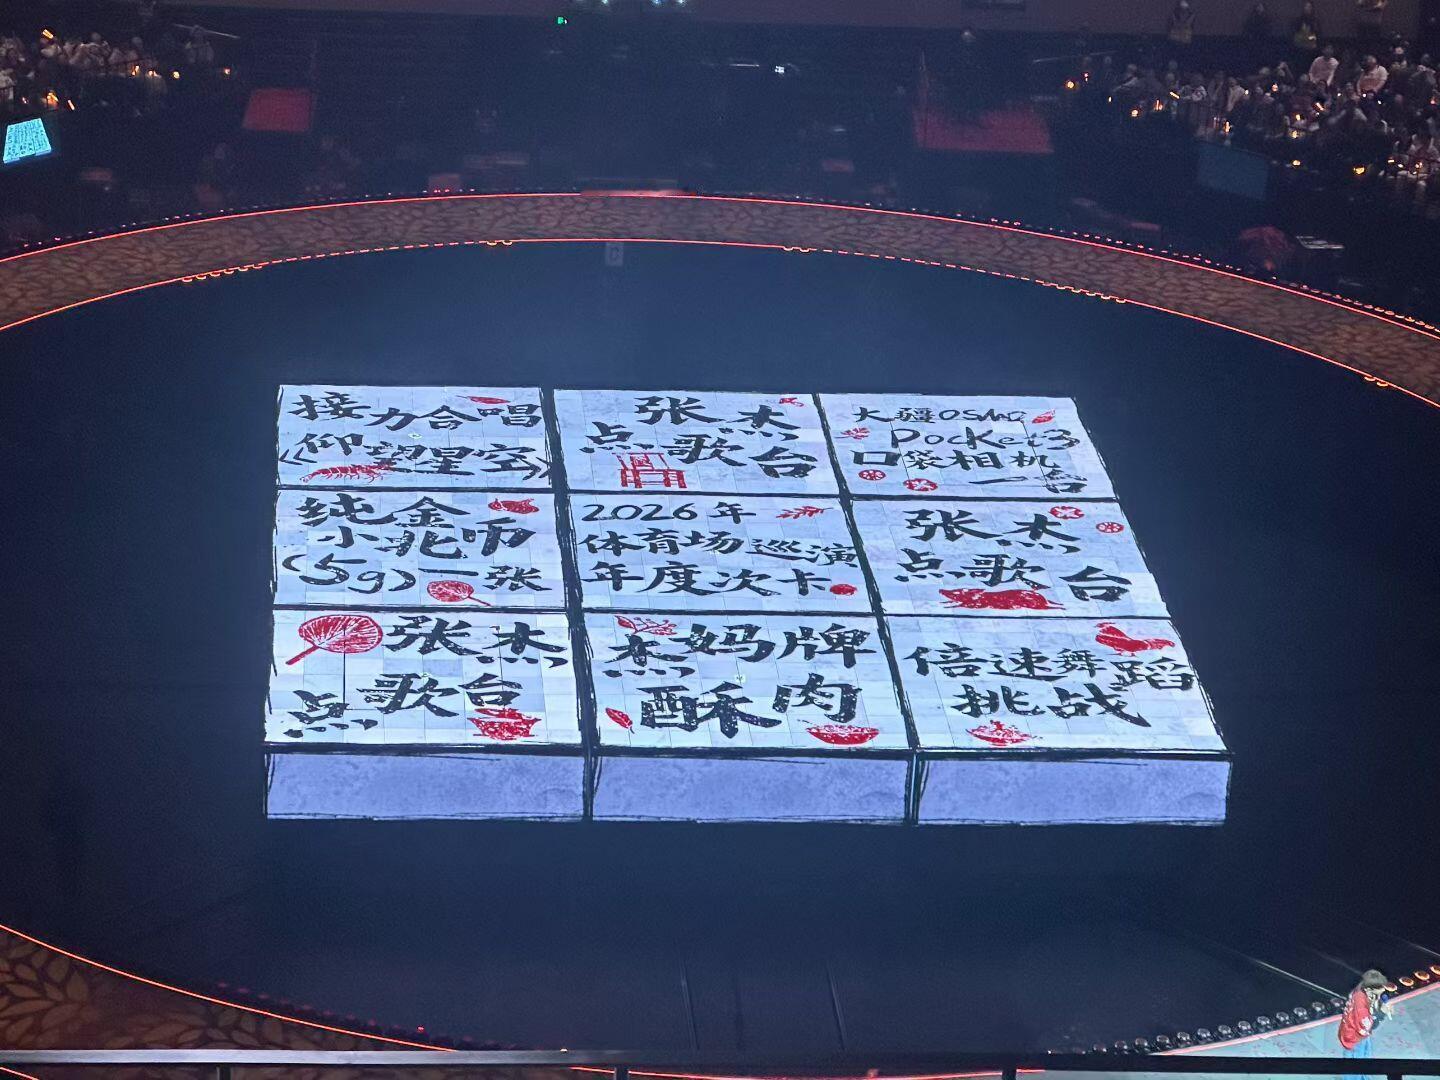 接力合唱
《仰望星空》
张杰
点歌台
大疆OSMO
Pocket3
口袋相机
一台
纯金
小北币
(5g)一张
2026年
体育场巡演
年度次卡
张杰
点歌台
张杰
点歌台
杰妈牌
酥肉
倍速舞蹈
挑战